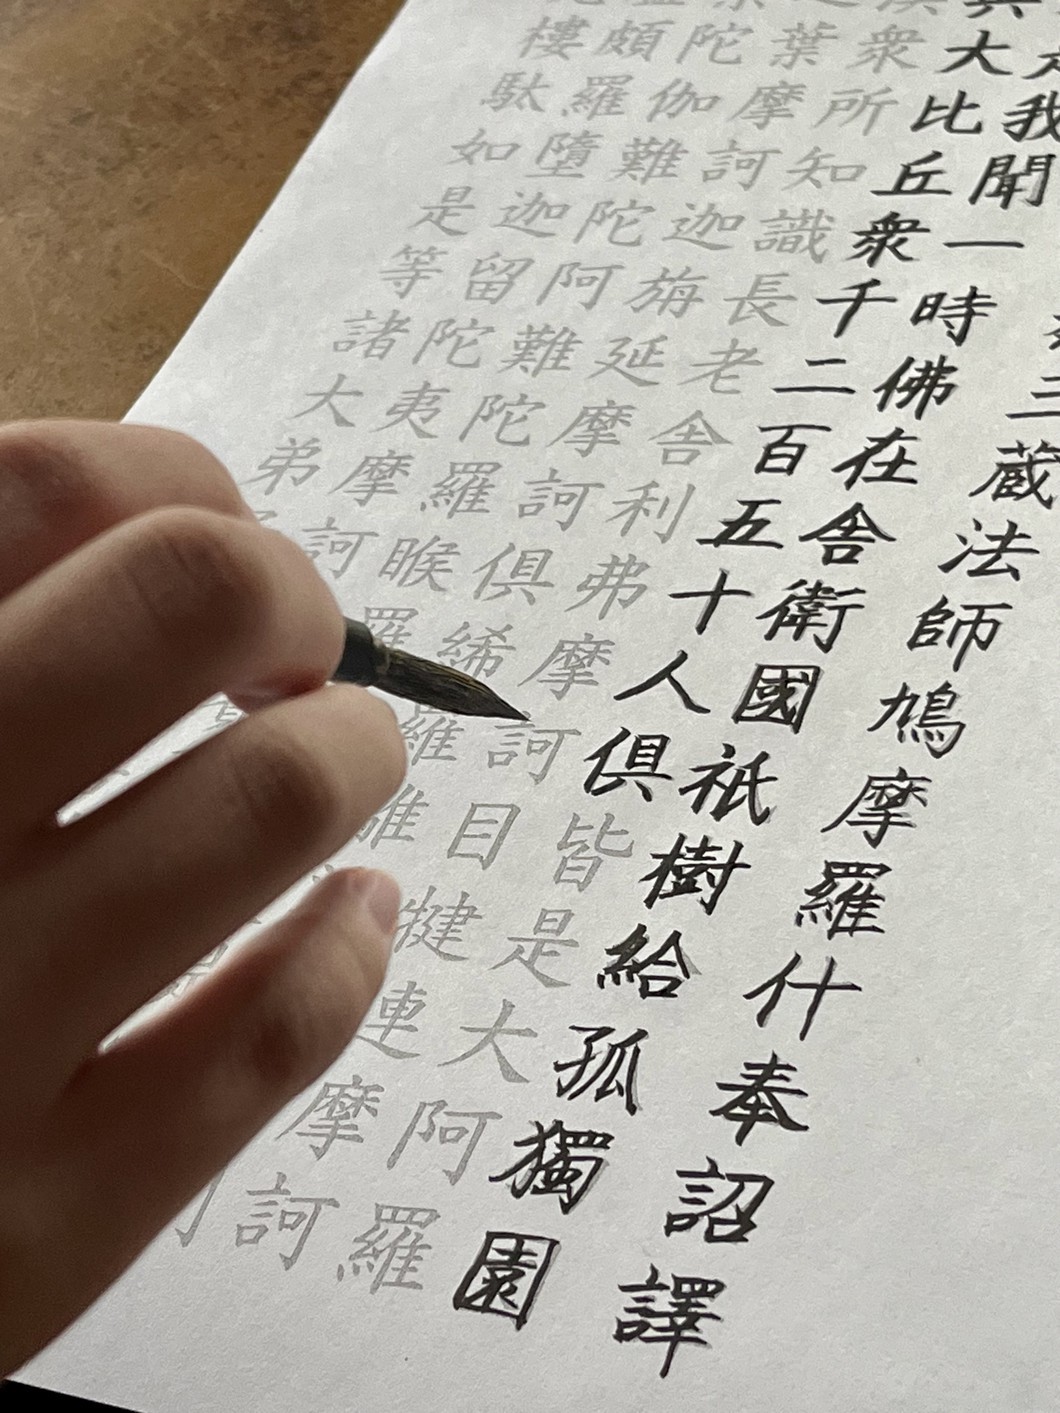 三蔵法師鳩摩羅什奉詔譯
我聞一時佛在舎衛國祇樹給孤獨園
與大比丘衆千二百五十人俱皆是大阿羅
漢衆所知識長老舎利弗摩訶目犍連摩訶
葉摩訶迦旃延摩訶俱絺羅離
陀伽難陀阿難陀羅睺羅
頗羅墮迦留陀夷摩訶
樓駄如是等諸大弟